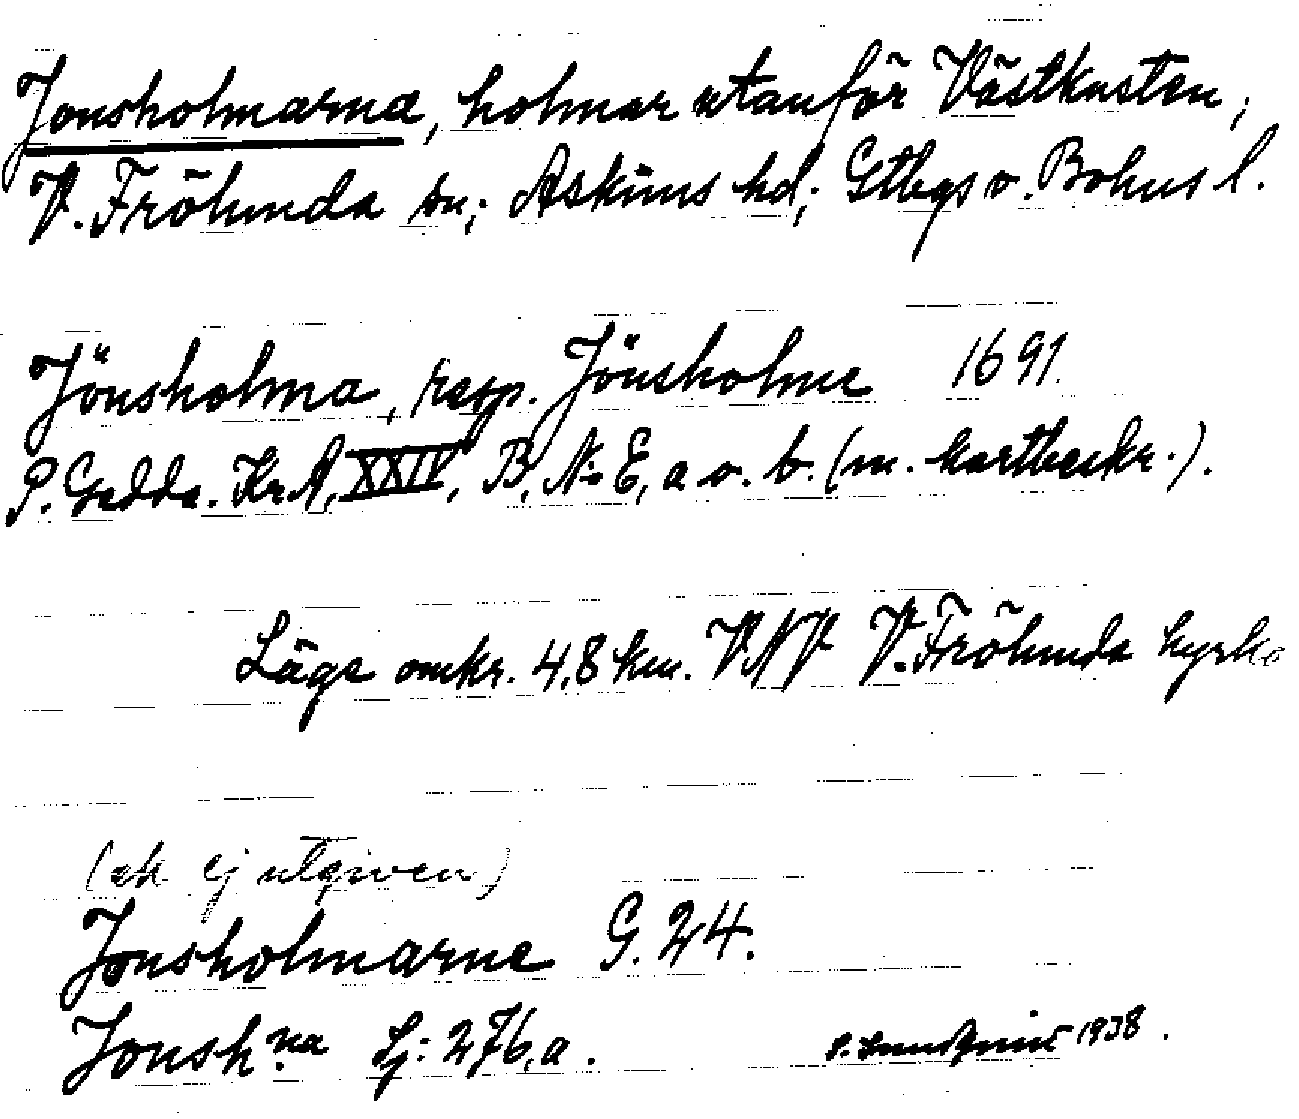 Jonsholmarna, holmar utanför Västkusten,
V. Frölunda sn; Askims hd; Gtbgs o. Bohus l.
Jönsholma, resp. Jönsholme 1691.
P. Gedda. Kr A, XXIV, B, N:o E, a o. b. (m. kartbeskr.).
Läge omkr. 4,8 km. VNV V. Frölunda kyrka
(ek ej utgiven)
Jonsholmarne G. 24.
Jonsh:na Sj: 276,a. 1938.